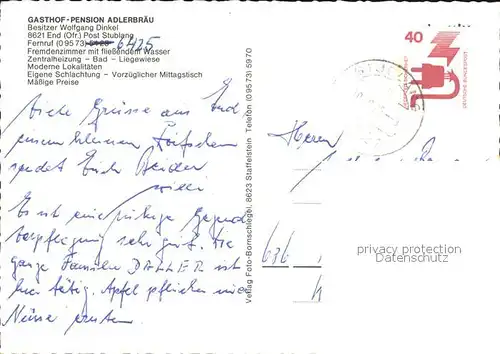 GASTHOF-PENSION ADLERBRÄU
Besitzer Wolfgang Dinkel
8621 End (Ofr.) Post Stublang
Fernruf (09573) 5128 6425
Fremdenzimmer mit fließendem Wasser
Zentralheizung – Bad – Liegewiese
Moderne Lokalitäten
Eigene Schlachtung – Vorzüglicher Mittagstisch
Mäßige Preise
Liebe Grüsse aus End
einem kleinen
sendet Euch Beiden
Es ist eine ruhige Gegend
Verpflegung sehr gut. Die
ganze Familie DALLER ist
hier tätig. Äpfel pflücken und
Nüsse ernten
Verlag Foto-Bornschlegel, 8623 Staffelstein Telefon (09573) 5970
40
DEUTSCHE BUNDESPOST
Herrn
636
privacy protection
Datenschutz